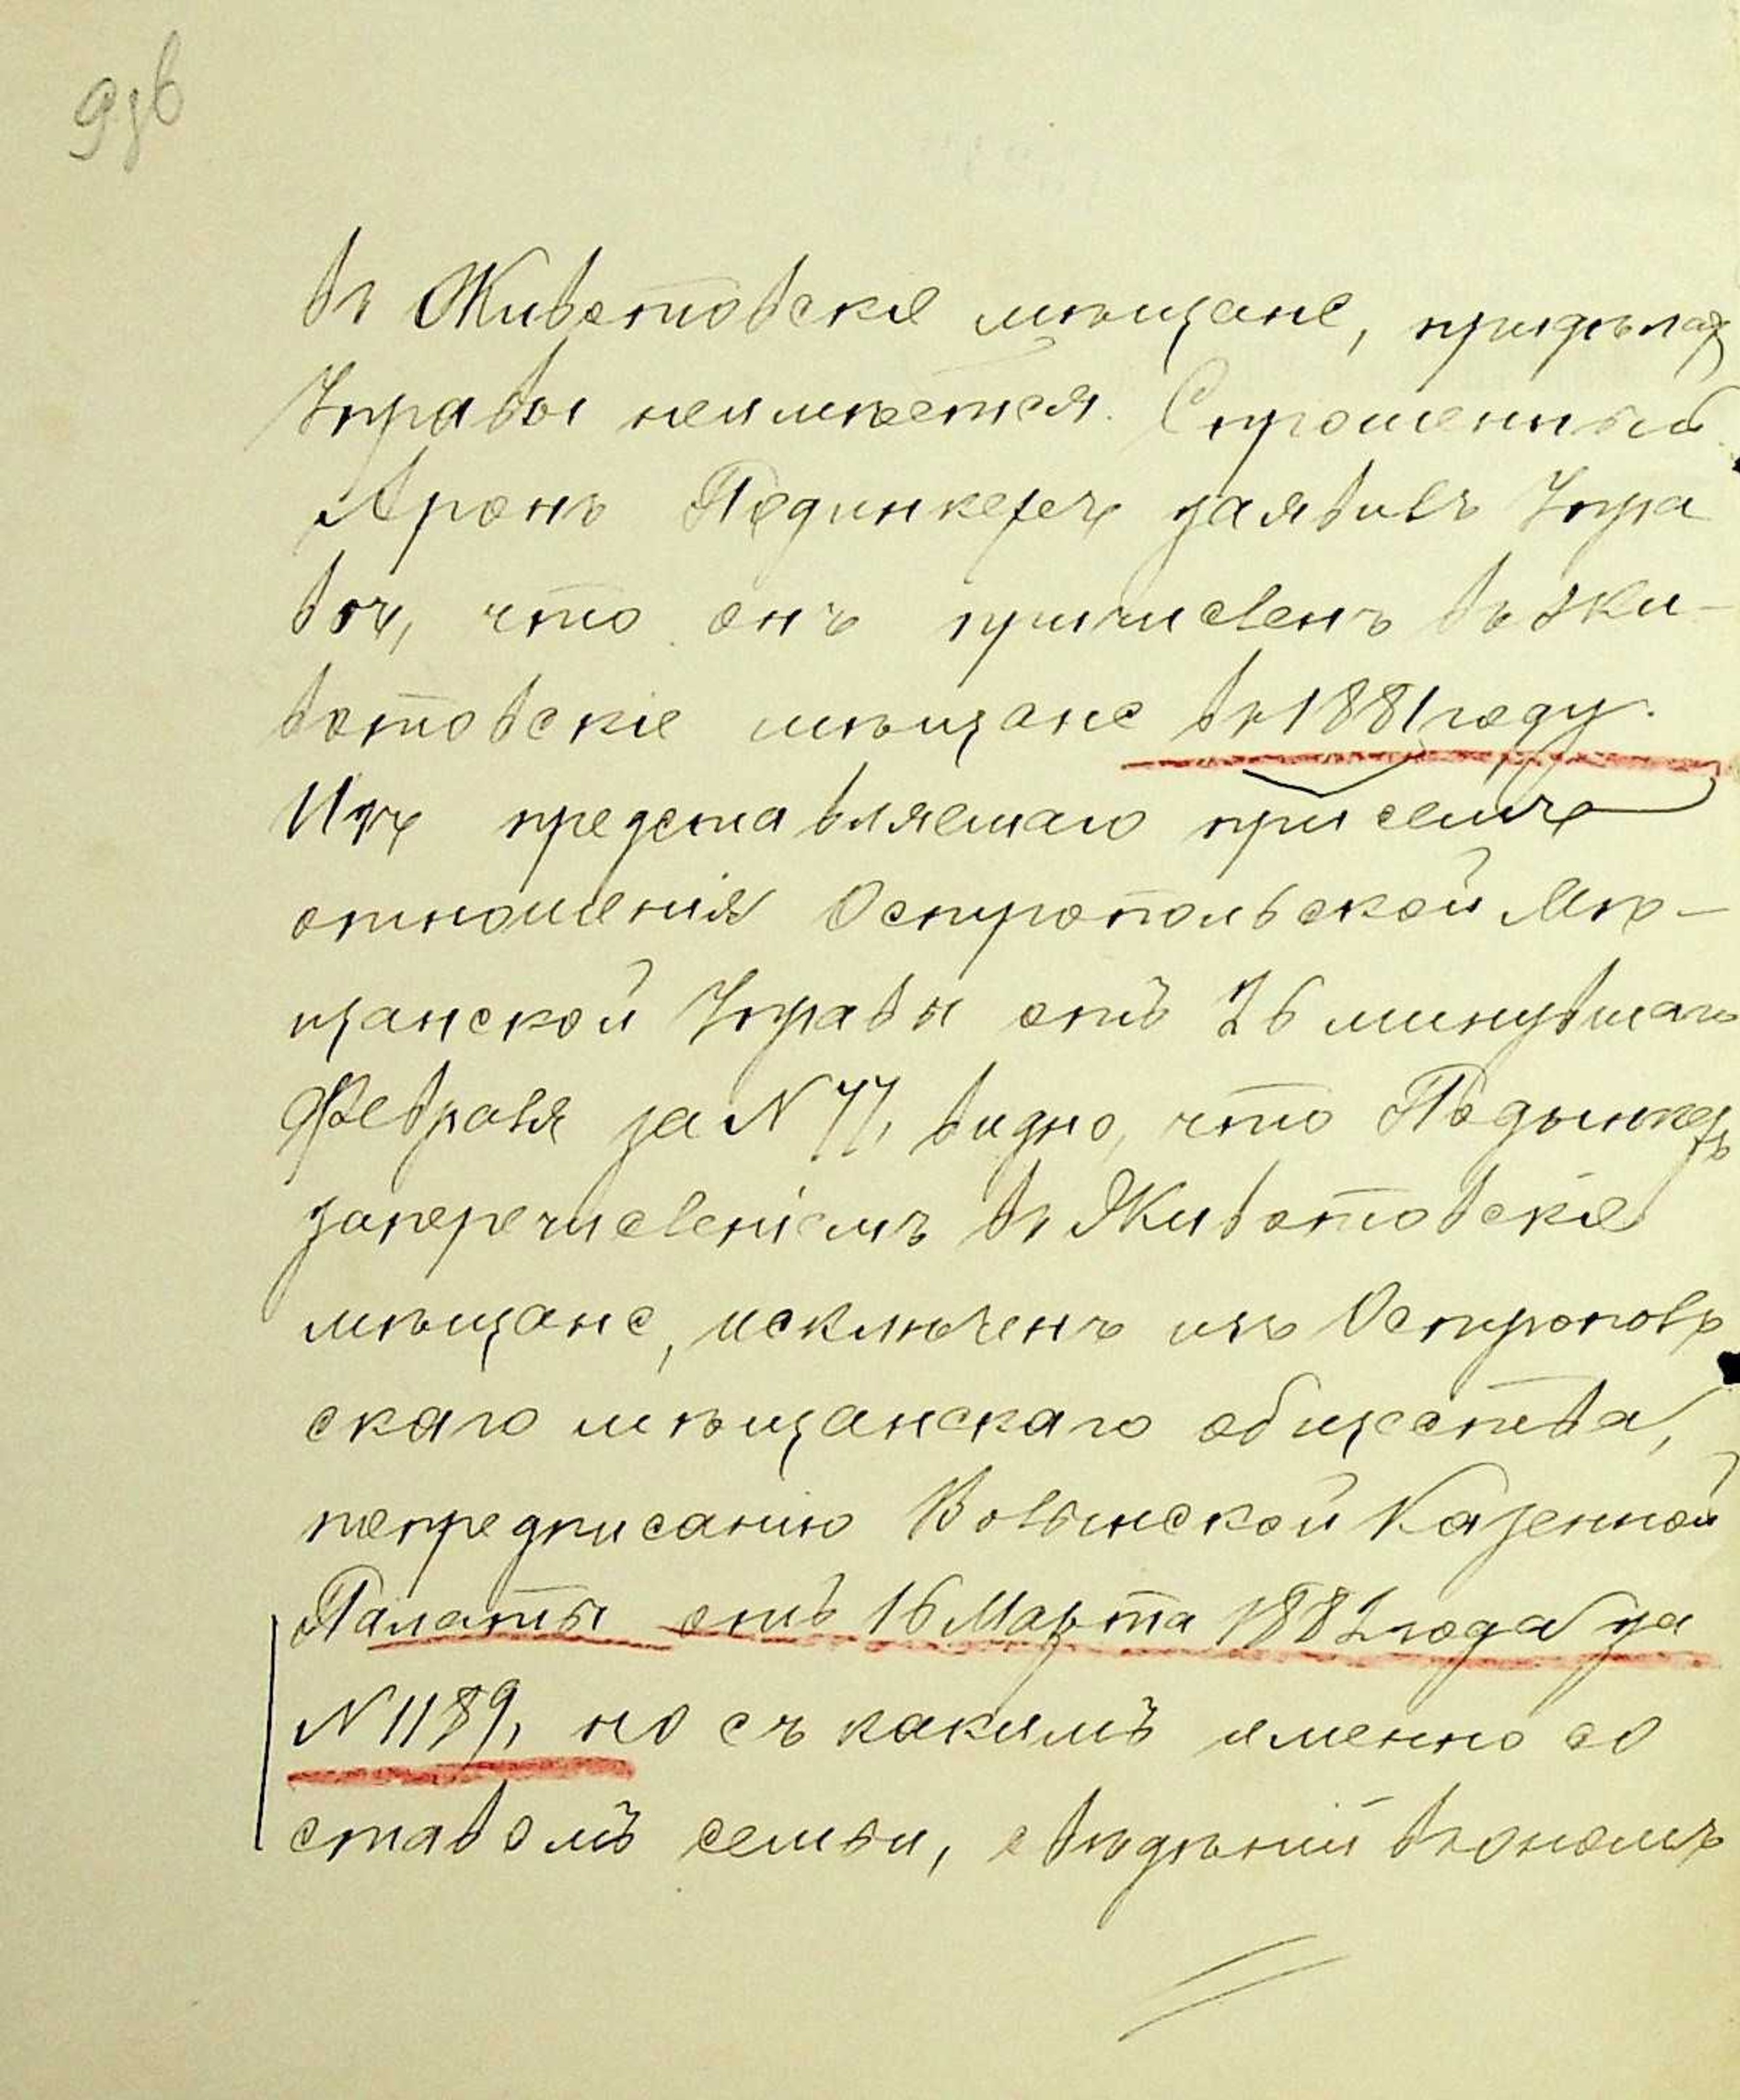 9зв
въ Животовскіе мѣщане, при дѣлах
Управы неимѣется. Спрошенный
Аронъ Пединкеръ заявилъ Упра
вѣ, что онъ причисленъ въ Жи-
вотовскіе мѣщане въ 1881 году.
Изъ представляемаго при семъ
отношенія Остропольской Мѣ-
щанской Управы отъ 26 минувшаго
Февраля за N 77, видно, что Подынкеръ
заперечисленіемъ въ Животовскіе
мѣщане, исключенъ изъ Острополь
скаго мѣщанскаго общества,
попредписанію Волынской Казенной
Палаты отъ 16 Марта 1882 года за
N 1189, но съ какимъ именно со
ставомъ семьи, свѣдѣній въ ономъ